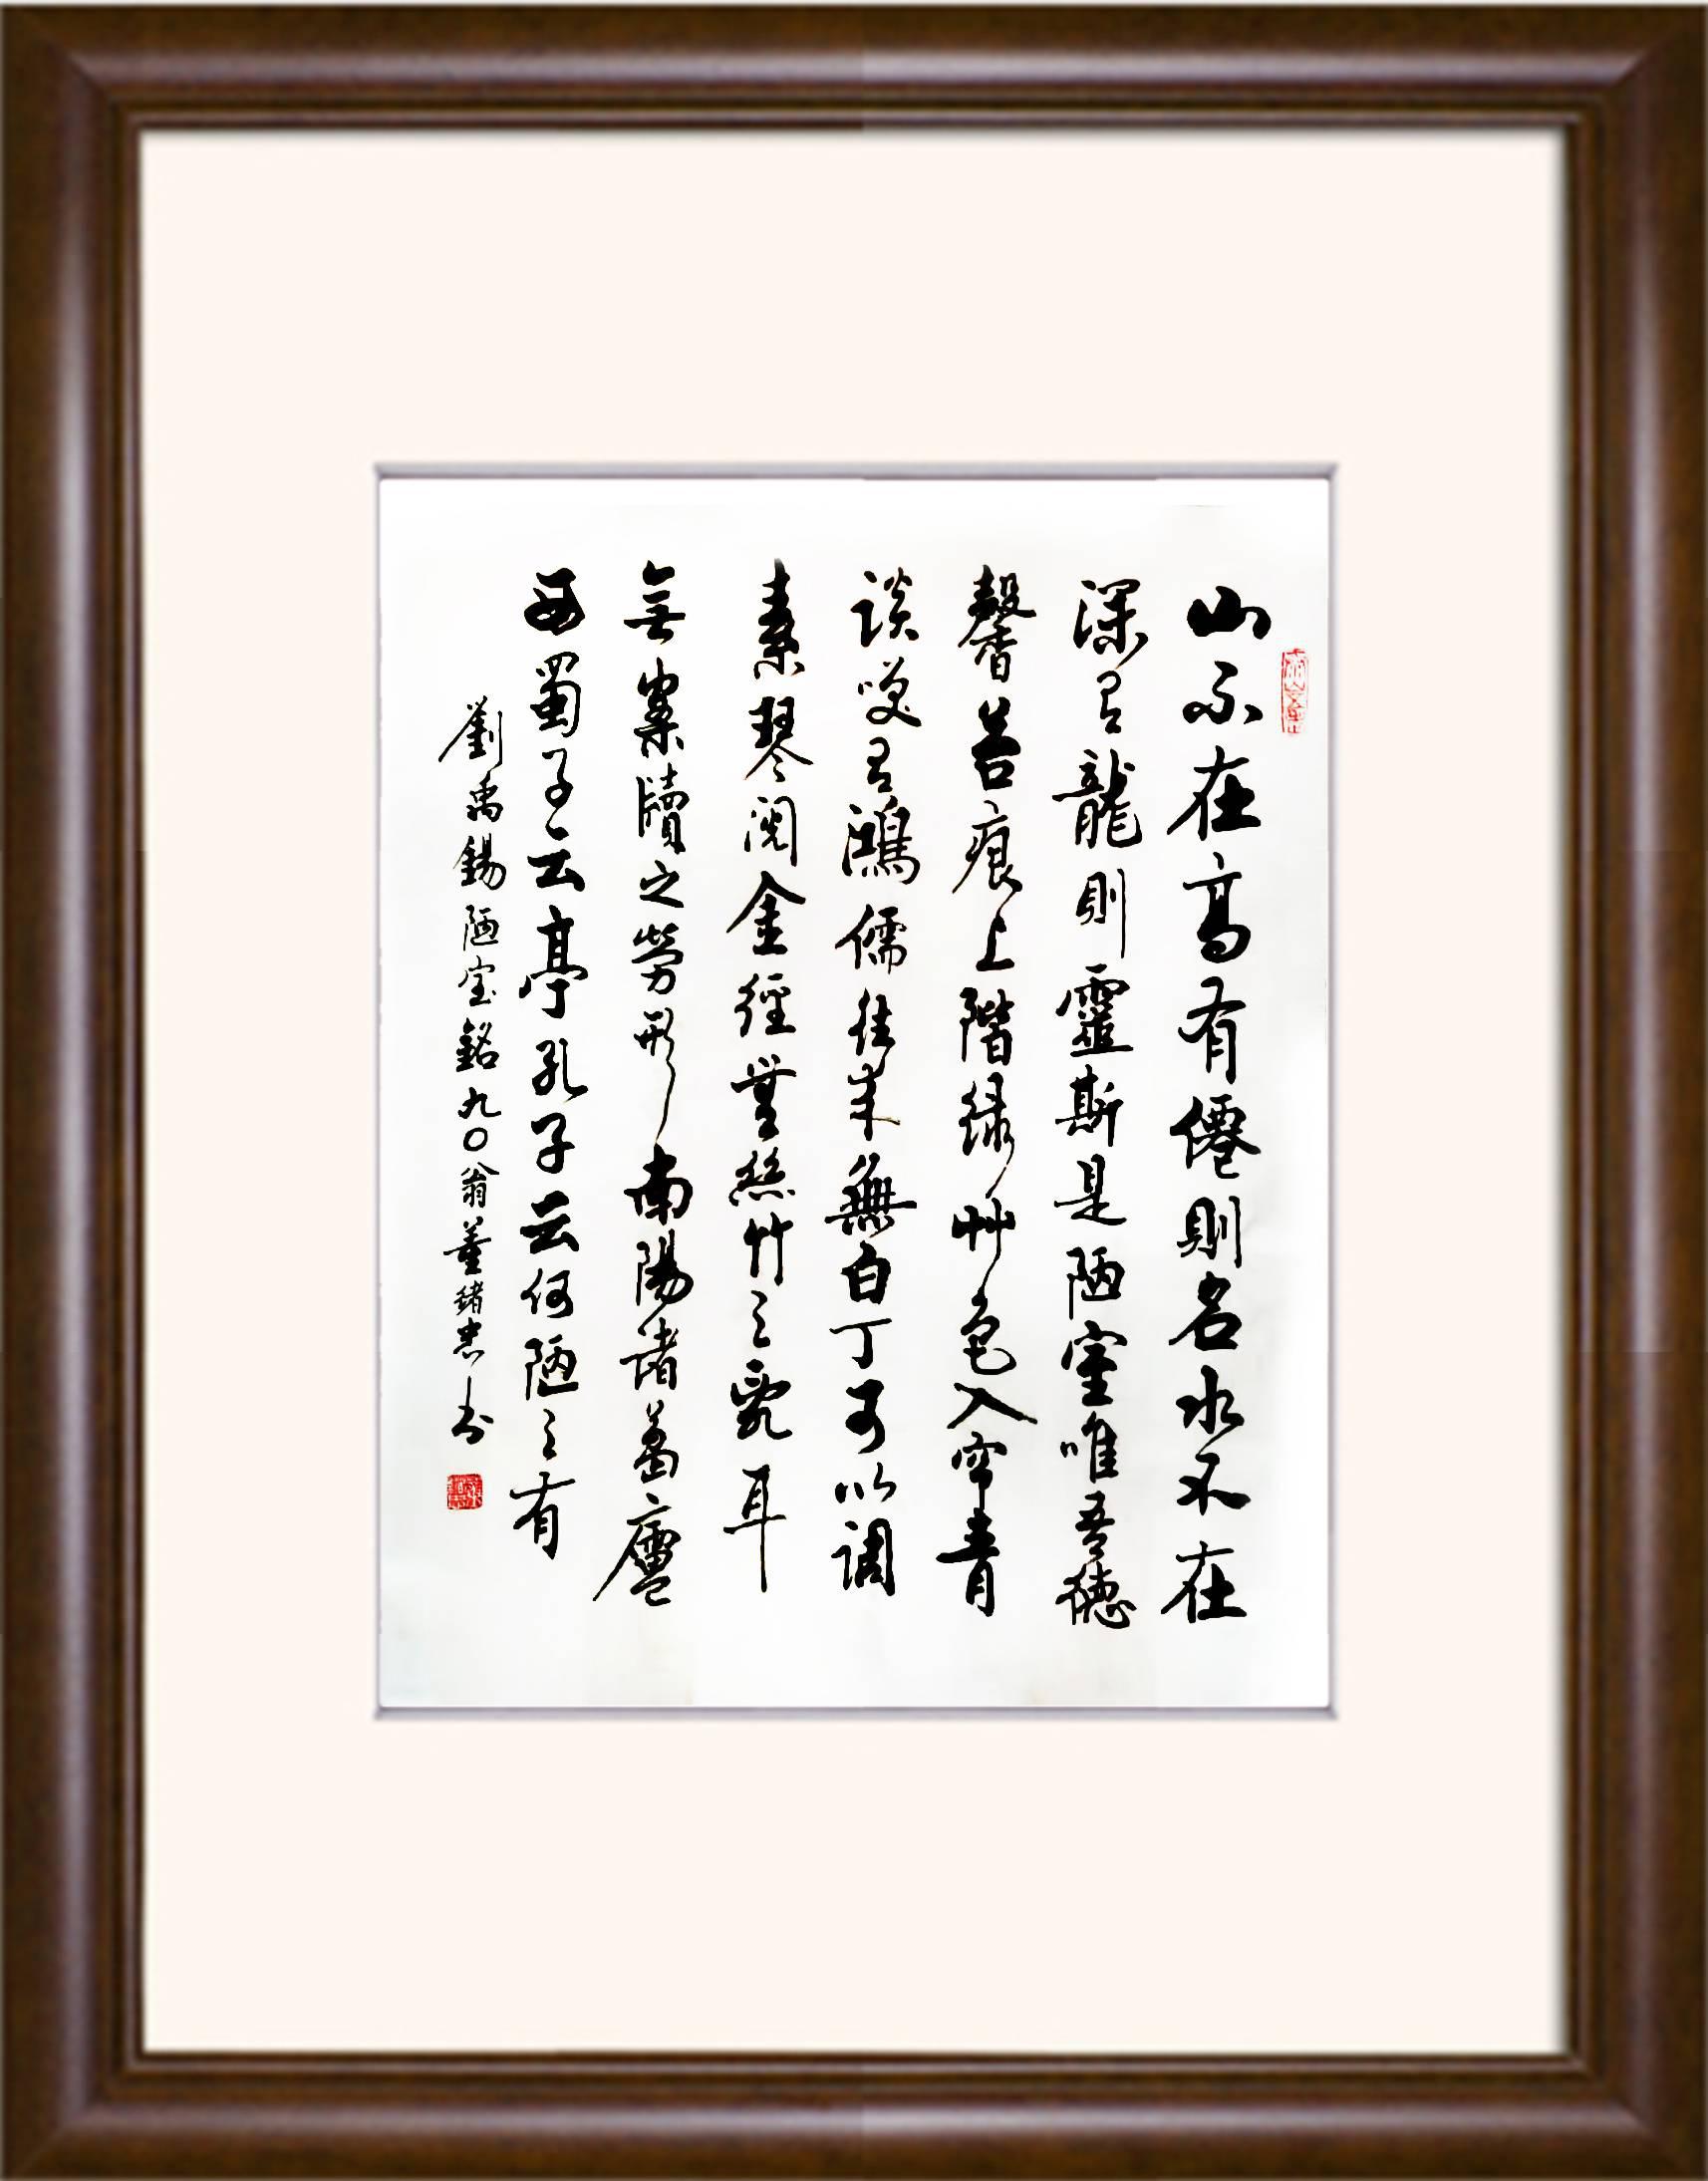 山不在高有僊則名水不在
深有龍則靈斯是陋室唯吾德
馨苔痕上階緑艸色入帘青
談咲有鴻儒往来無白丁可以調
素琴閱金經無絲竹之亂耳
無案牘之勞形南陽諸葛廬
西蜀子云亭孔子云何陋之有
劉禹錫陋室銘九〇翁董緒忠书